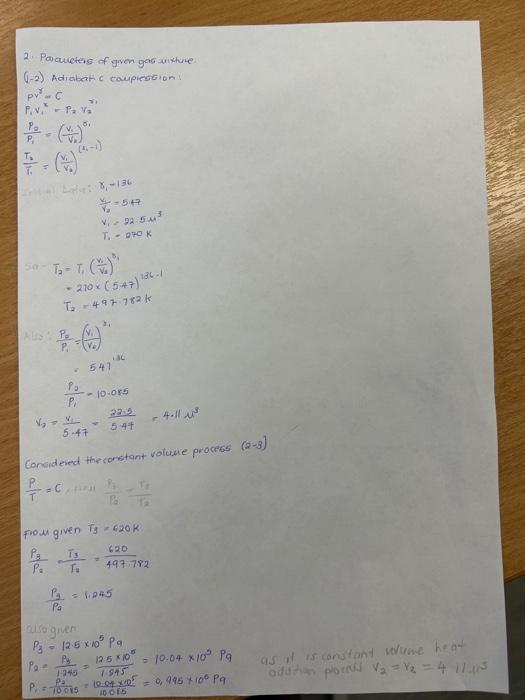 2. Parameters of given gas mixture.
(1-2) Adiabatic compression:
pv^γ = C
P₁V₁^γ = P₂V₂^γ₁
P₂/P₁ = (V₁/V₂)^γ₁
T₂/T₁ = (V₁/V₂)^(γ₁-1)
Initial Data: γ₁ = 1.36
V₁/V₂ = 5.47
V₁ = 22.5 M³
T₁ = 270 K
So - T₂ = T₁ (V₁/V₂)^γ₁
= 270 x (5.47)^1.36-1
T₂ = 497.782 K
Also: P₂/P₁ = (V₁/V₂)^γ₁
= 5.47^1.36
P₂/P₁ = 10.085
V₂ = V₁/5.47 = 22.5/5.47 = 4.11 M³
Considered the constant volume process (2-3)
P/T = C, P₃/P₂ = T₃/T₂
From given T₃ = 620 K
P₃/P₂ = T₃/T₂ = 620/497.782
P₃/P₂ = 1.245
also given
P₃ = 12.5 x 10⁵ Pa
P₂ = P₃/1.245 = 12.5 x 10⁵/1.245 = 10.04 x 10⁵ Pa
P₁ = P₂/10.085 = 10.04 x 10⁵/10.085 = 0,995 x 10⁵ Pa
as it is constant volume heat
addition process V₂ = V₃ = 4.11 M³